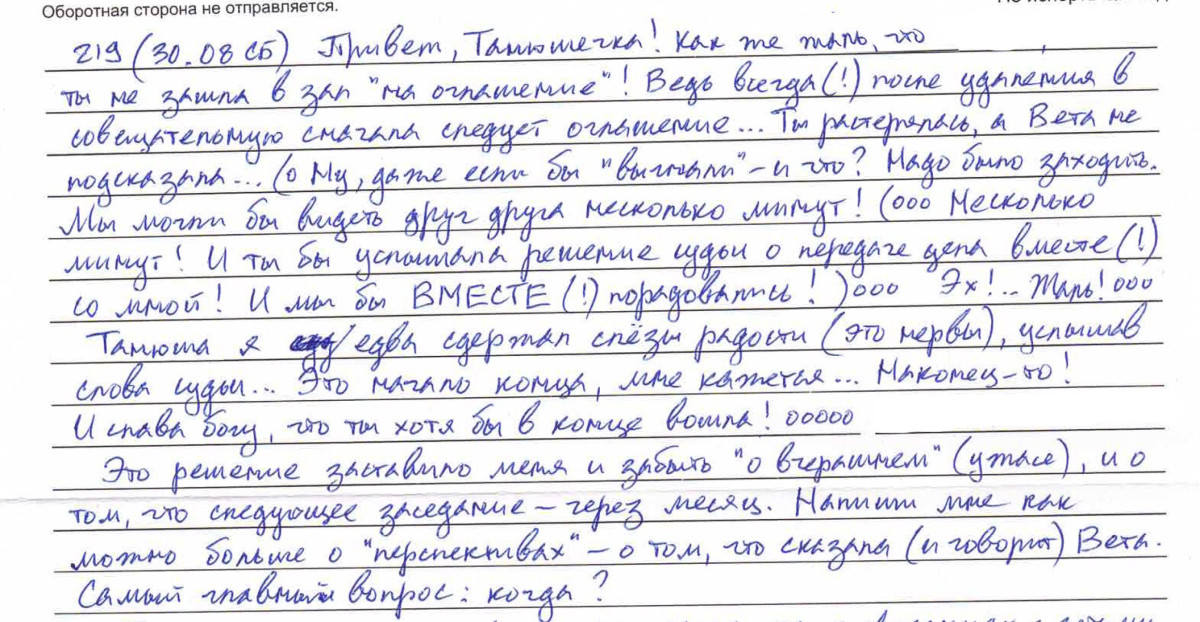 Оборотная сторона не отправляется.
219 (30.08 СБ) Привет, Танюшечка! Как же жаль, что
ты не зашла в зал "на оглашение"! Ведь всегда(!) после удаления в
совещательную сначала следует оглашение... Ты растерялась, а Вета не
подсказала... (о Ну, даже если бы "выгнали" - и что? Надо было заходить.
Мы могли бы видеть друг друга несколько минут! (ооо Несколько
минут! И ты бы услышала решение судьи о передаче дела вместе (!)
со мной! И мы бы ВМЕСТЕ (!) порадовались! )ооо Эх!.. Жаль! ооо
Танюша я едва сдержал слёзы радости (это нервы), услышав
слова судьи... Это начало конца, мне кажется... Наконец-то!
И слава богу, что ты хотя бы в конце вошла! ооооо
Это решение заставило меня и забыть "о вчерашнем" (ужасе), и о
том, что следующее заседание - через месяц. Напиши мне как
можно больше о "перспективах" - о том, что сказала (и говорит) Вета.
Самый главный вопрос: когда?